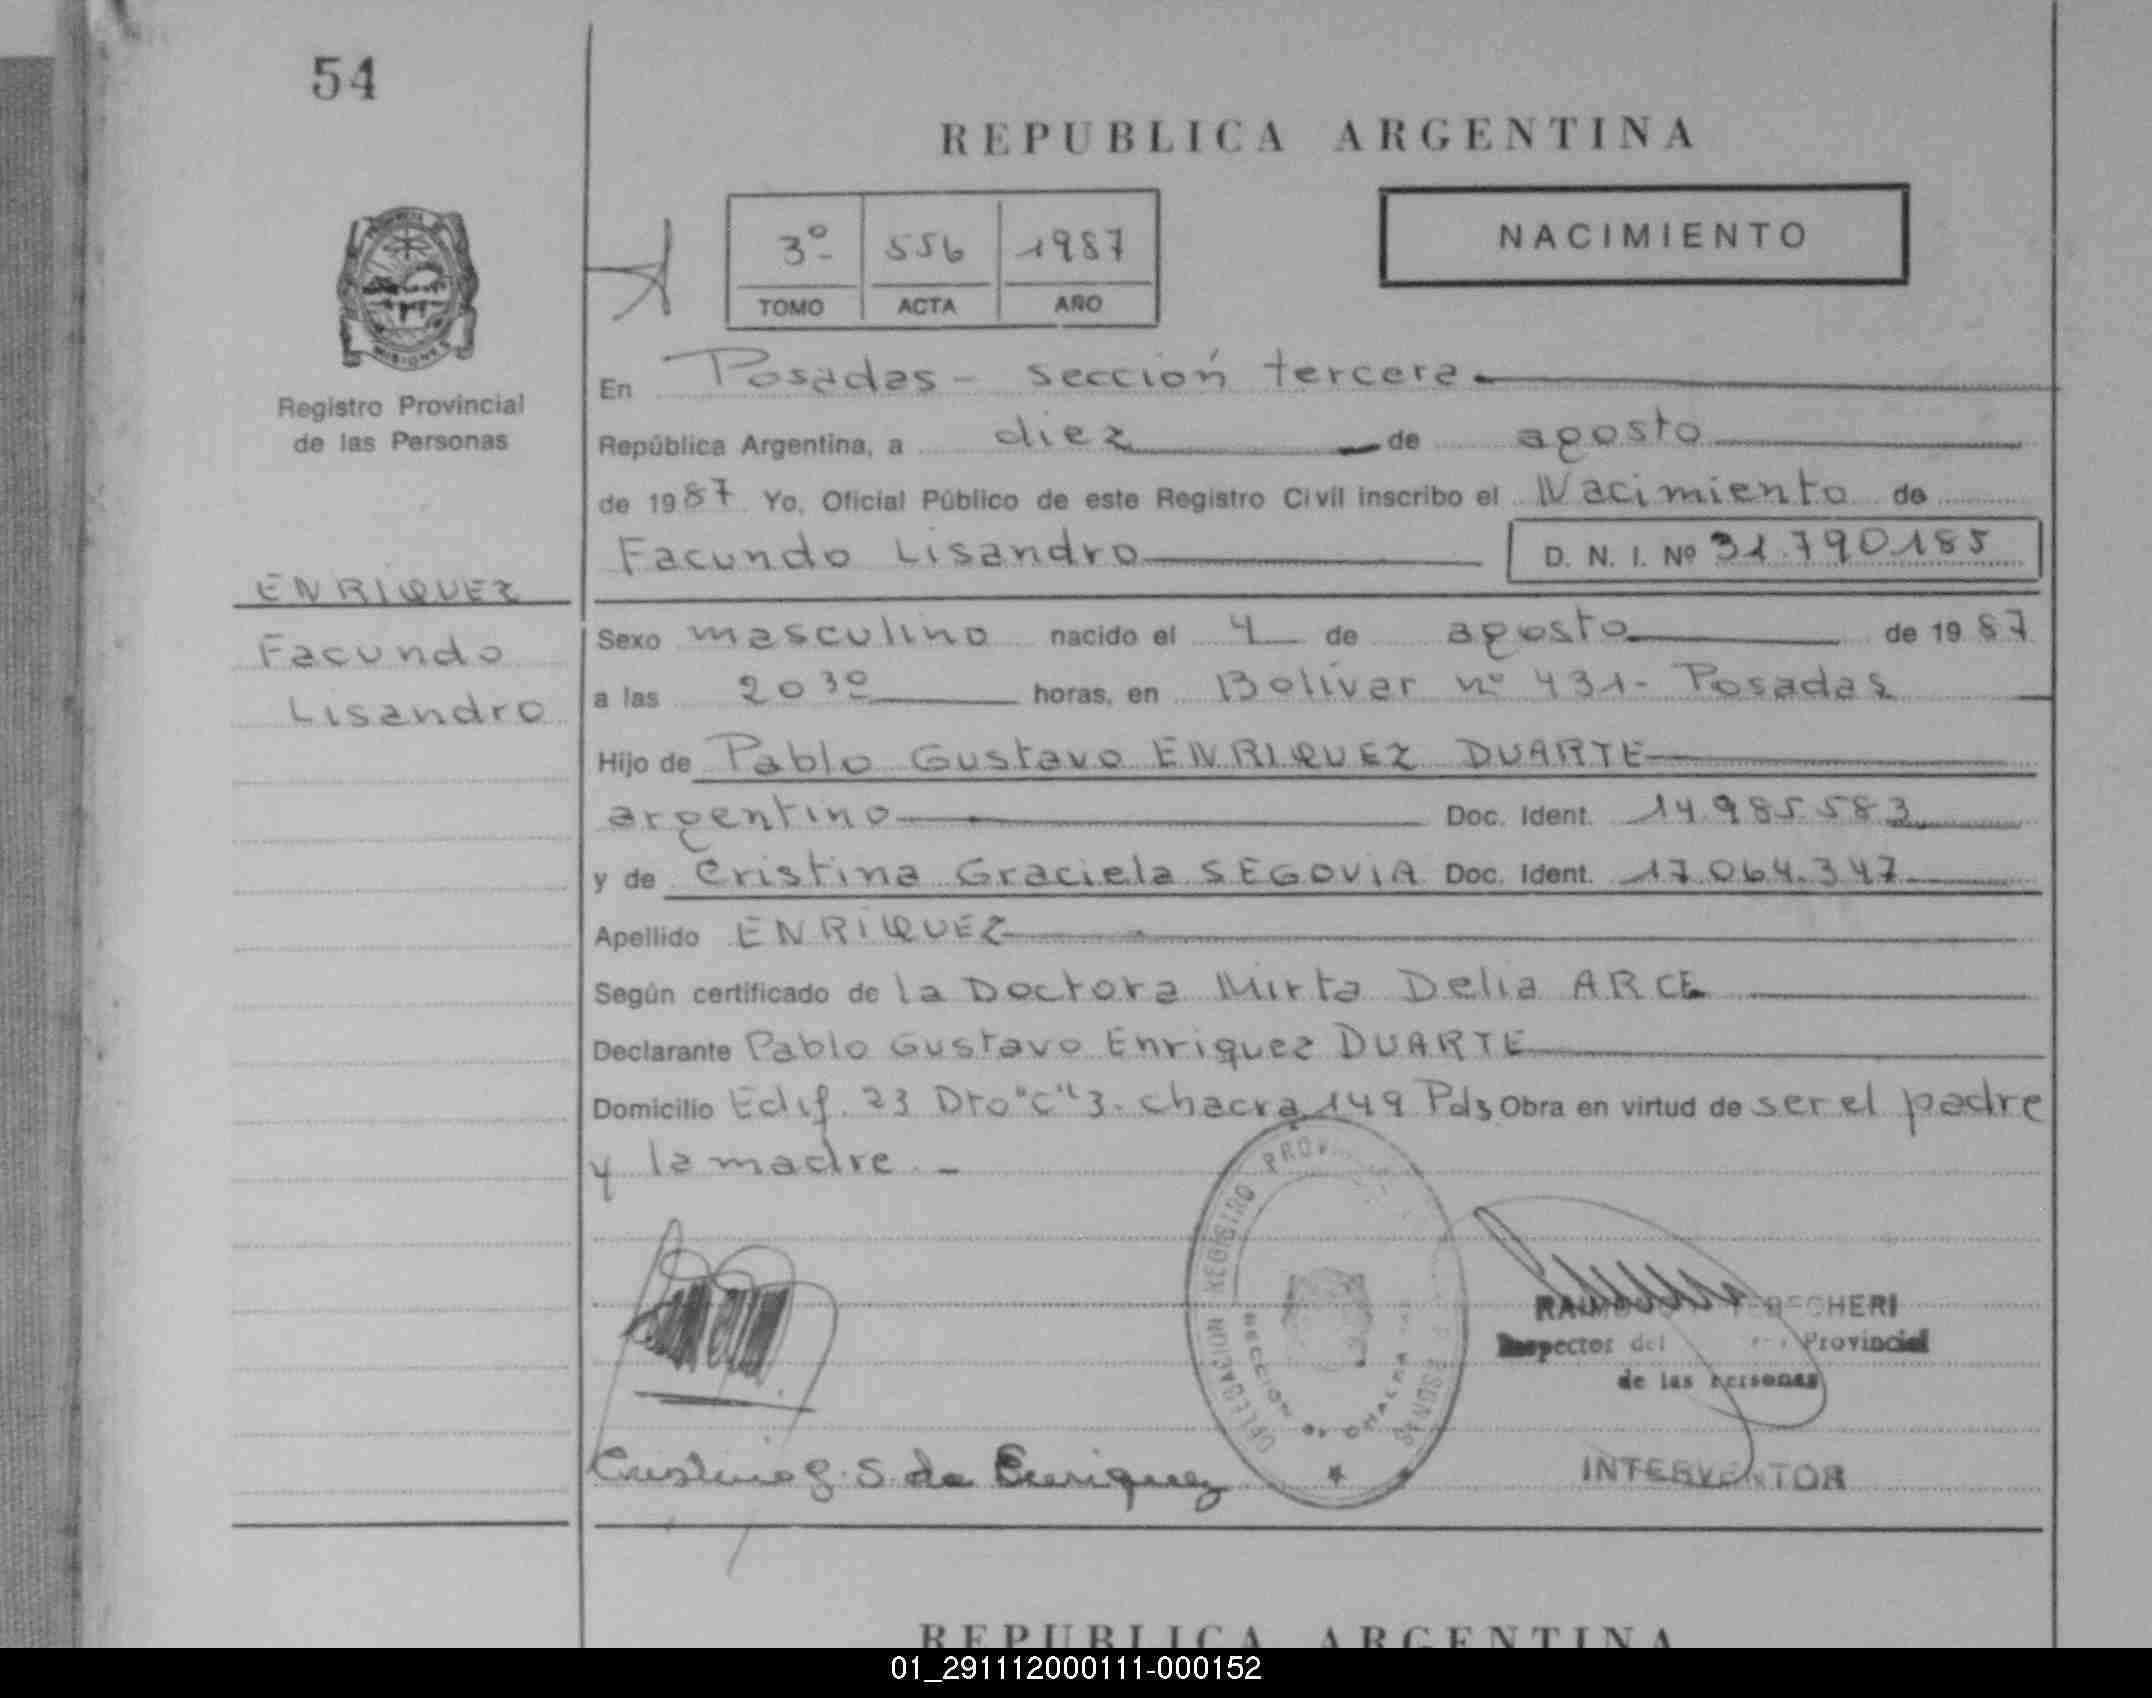 54
REPUBLICA ARGENTINA
3º 556 1987
TOMO ACTA AÑO
NACIMIENTO
MISIONES
Registro Provincial
de las Personas
En Posadas - sección tercera
República Argentina, a diez de agosto
de 1987 Yo, Oficial Público de este Registro Civil inscribo el Nacimiento de
Facundo Lisandro D. N. I. Nº 31.790.185
ENRIQUEZ
Facundo
Lisandro
Sexo masculino nacido el 4 de agosto de 1987
a las 20 30 horas, en Bolívar nº 431 - Posadas
Hijo de Pablo Gustavo ENRIQUEZ DUARTE
argentino Doc. Ident. 14.985.583
y de Cristina Graciela SEGOVIA Doc. Ident. 17.064.347
Apellido ENRIQUEZ
Según certificado de la Doctora Mirta Delia ARCE
Declarante Pablo Gustavo Enriquez DUARTE
Domicilio Edif. 23 Dto "C" 3 - chacra 149 Pds Obra en virtud de ser el padre
y la madre. -
DELEGACION REGISTRO
SECCION
CHACRA
Inspector del Provincial
de las Personas
Cristina G. S. de Enriquez
INTERVENTOR
REPUBLICA ARGENTINA
01_291112000111-000152